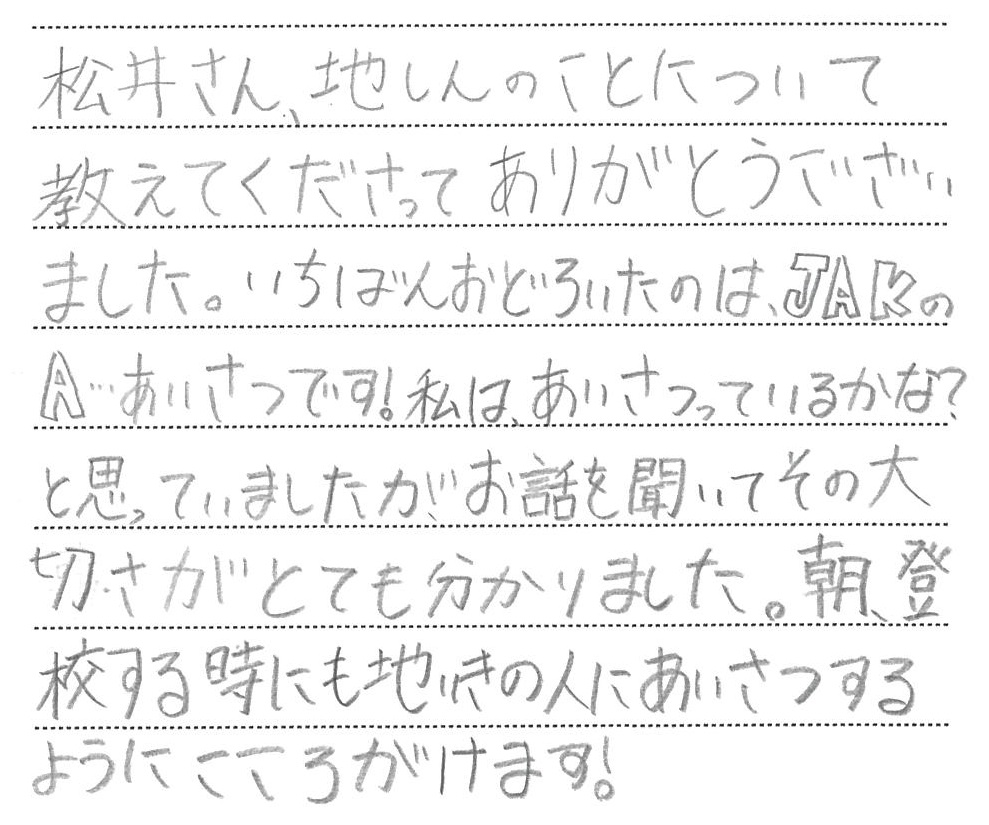 松井さん、地しんのことについて
教えてくださってありがとうござい
ました。いちばんおどろいたのは、JAKの
A…あいさつです!私は、あいさつっているかな?
と思っていましたが、お話を聞いてその大
切さがとても分かりました。朝、登
校する時にも地いきの人にあいさつする
ようにこころがけます!